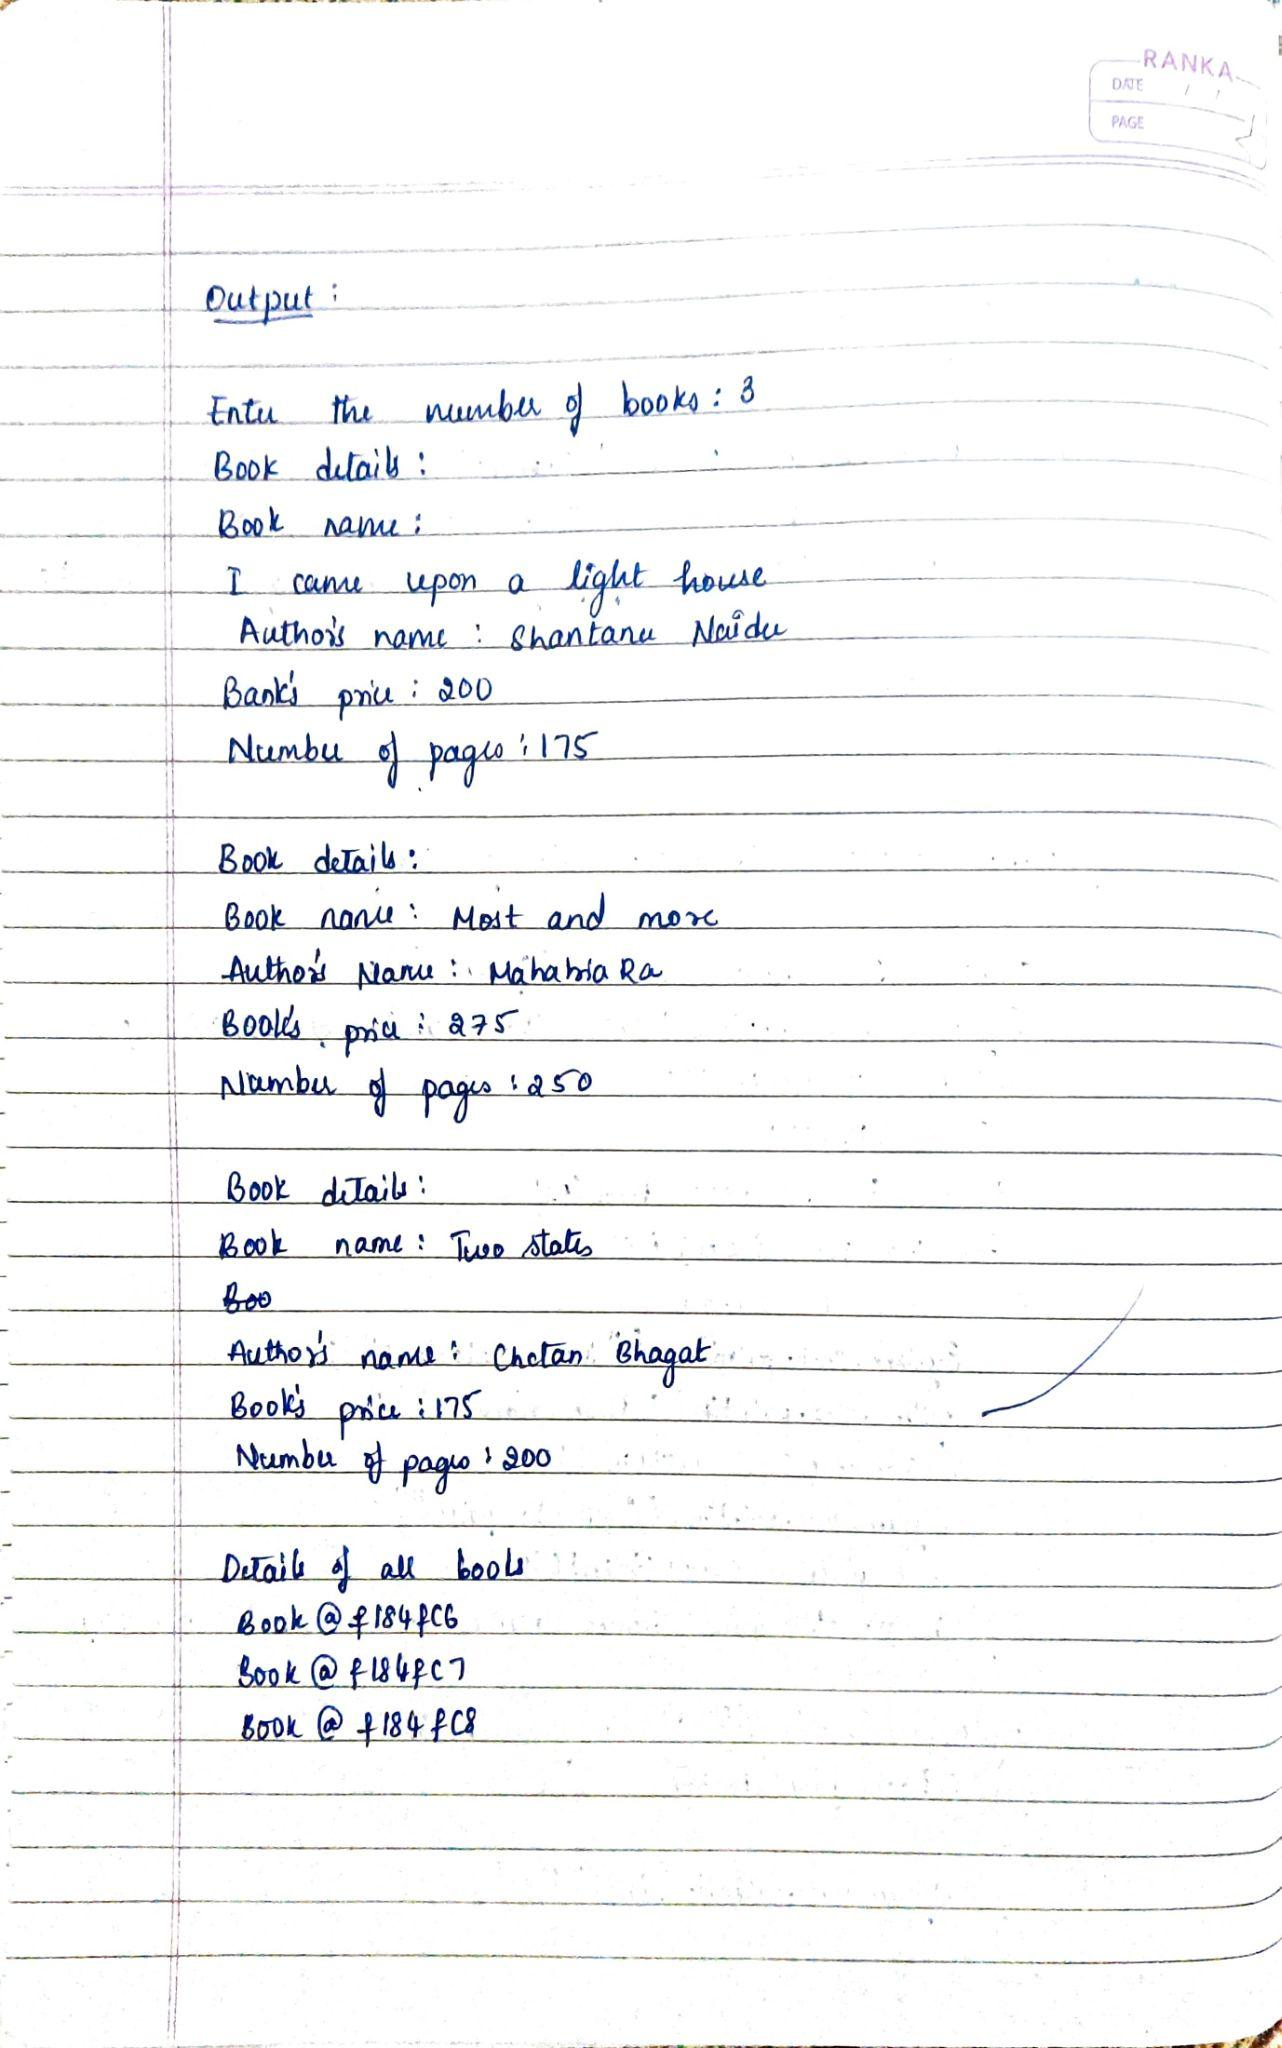 RANKA
DATE / /
PAGE
Output :
Enter the number of books : 3
Book details :
Book name :
I came upon a light house
Author's name : Shantanu Naidu
Bank's price : 200
Number of pages : 175
Book details :
Book name : Most and more
Author's Name : Mahatria Ra
Book's price : 275
Number of pages : 250
Book details :
Book name : Two states
Boo
Author's name : Chetan Bhagat
Book's price : 175
Number of pages : 200
Details of all books
Book @ f184fC6
Book @ f184fC7
Book @ f184fC8